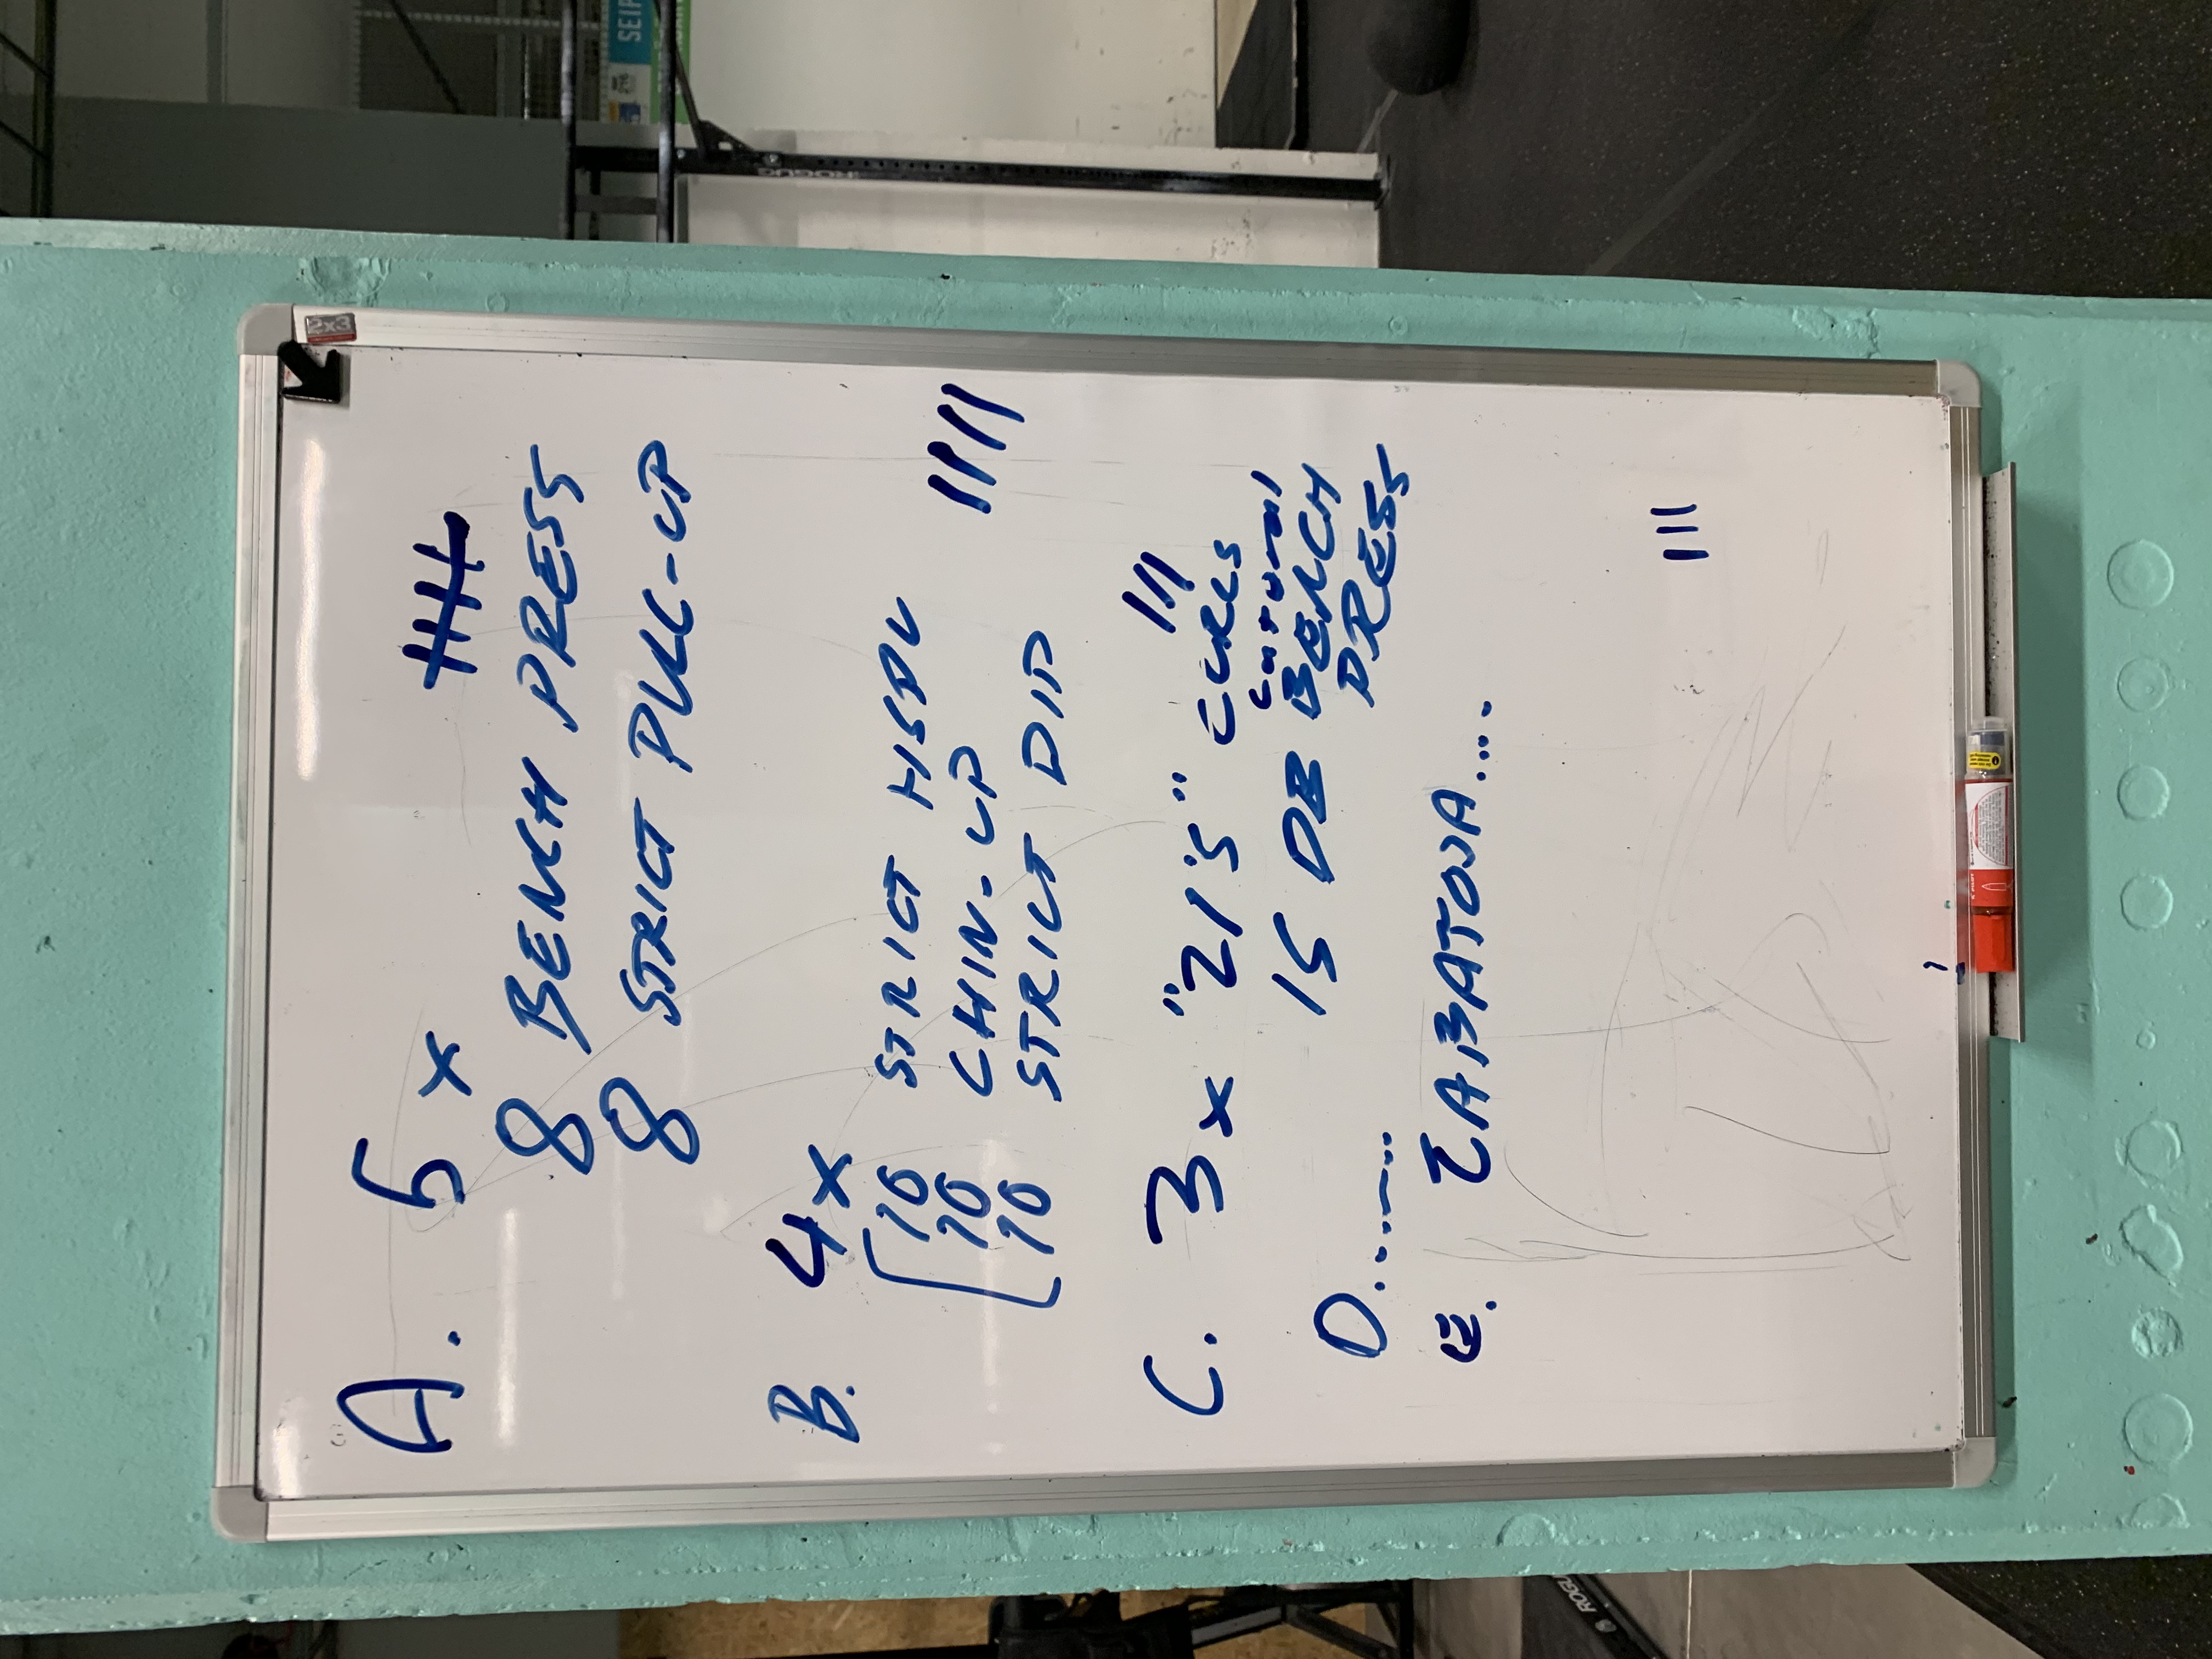 A. 5 x
8 BENCH PRESS
8 STRICT PULL-UP
B. 4x
10 STRICT HSPU
10 CHIN-UP
10 STRICT DIP
C. 3 x "21's" CURLS
15 DB BENCH
PRESS
D.
E. ZAJBATOVA....
2x3
ROGUE
ROGU
SEIF